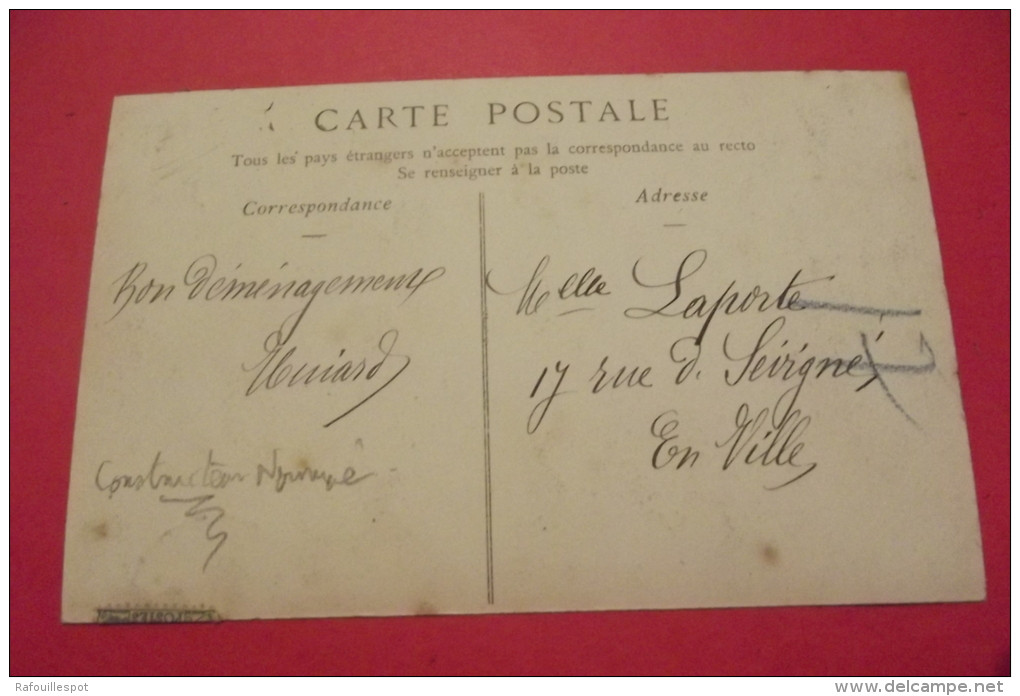 CARTE POSTALE
Tous les pays étrangers n'acceptent pas la correspondance au recto
Se renseigner à la poste
Correspondance
Adresse
Bon déménagement
Melle Laporte
17 rue d. Sévigné
En Ville
Constructeur
Rafouillespot
www.delcampe.net